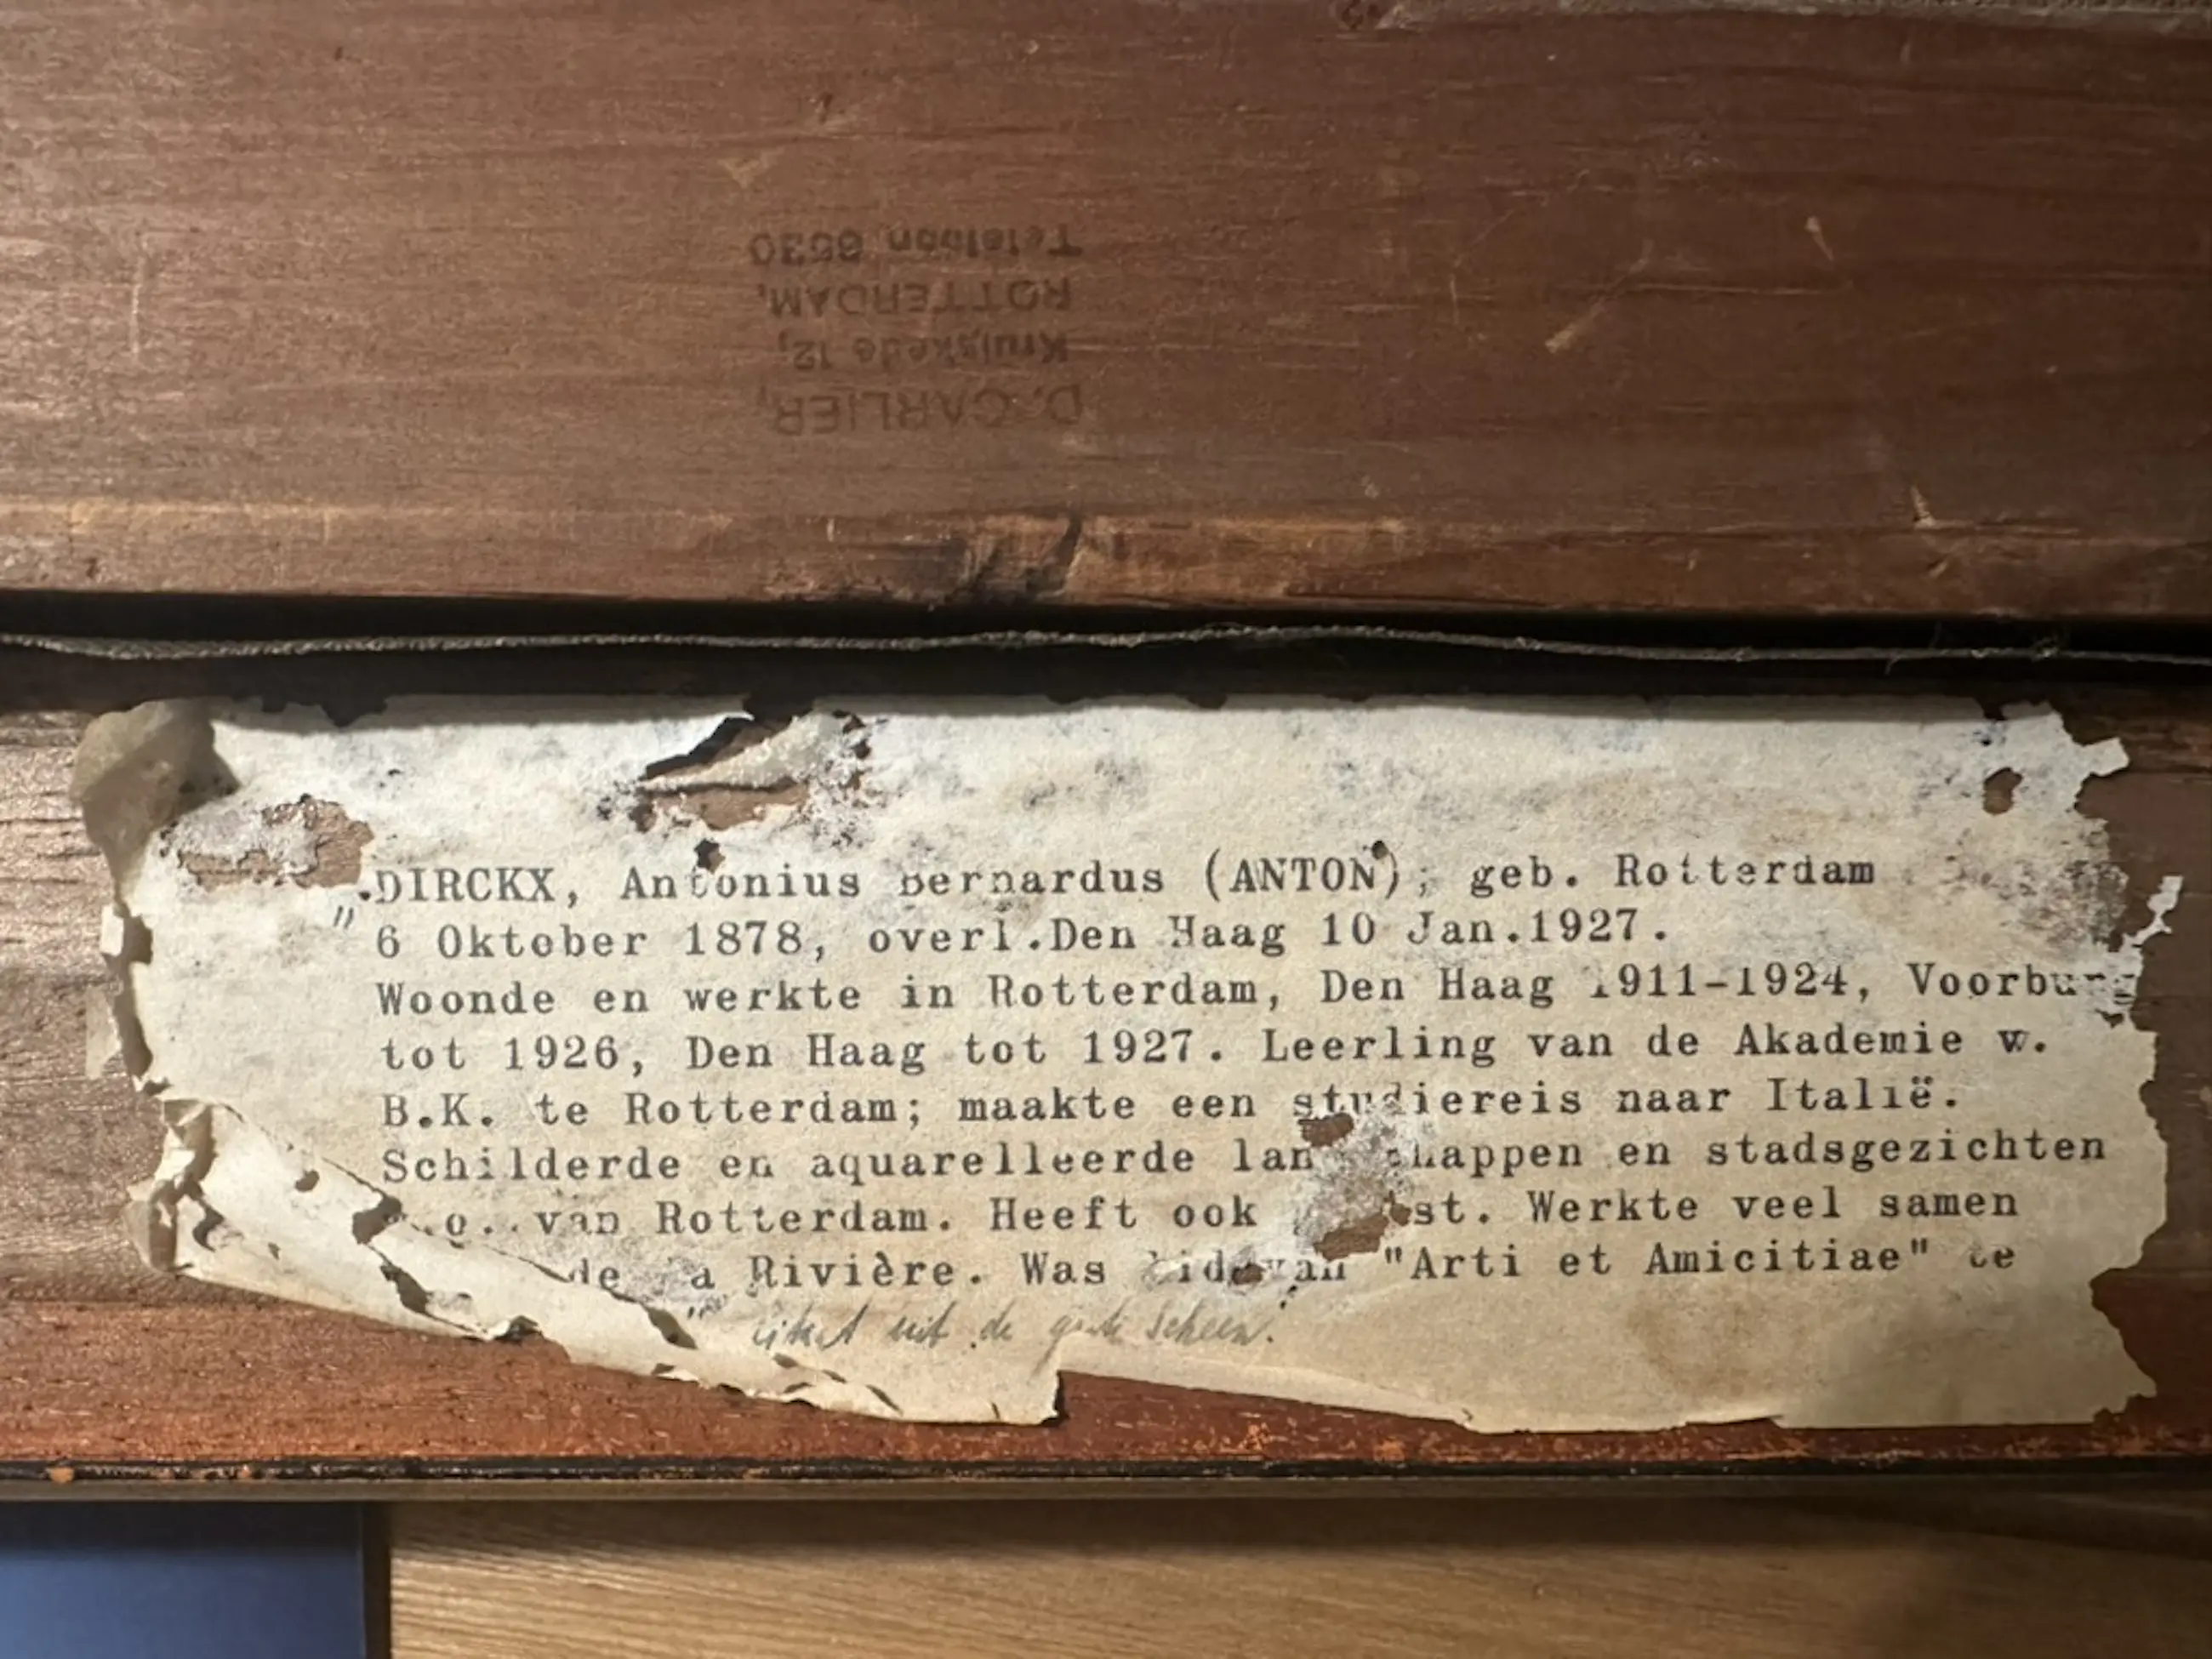 D. CARLIER,
Kruiskade 12,
ROTTERDAM,
Telefoon 6630
DIRCKX, Antonius Bernardus (ANTON), geb. Rotterdam
" 6 Oktober 1878, overl.Den Haag 10 Jan.1927.
Woonde en werkte in Rotterdam, Den Haag 1911-1924, Voorburg
tot 1926, Den Haag tot 1927. Leerling van de Akademie v.
B.K. te Rotterdam; maakte een studiereis naar Italië.
Schilderde en aquarelleerde landschappen en stadsgezichten
van Rotterdam. Heeft ook Werkte veel samen
de la Rivière. Was lid van "Arti et Amicitiae" te
" uit de Scheen.